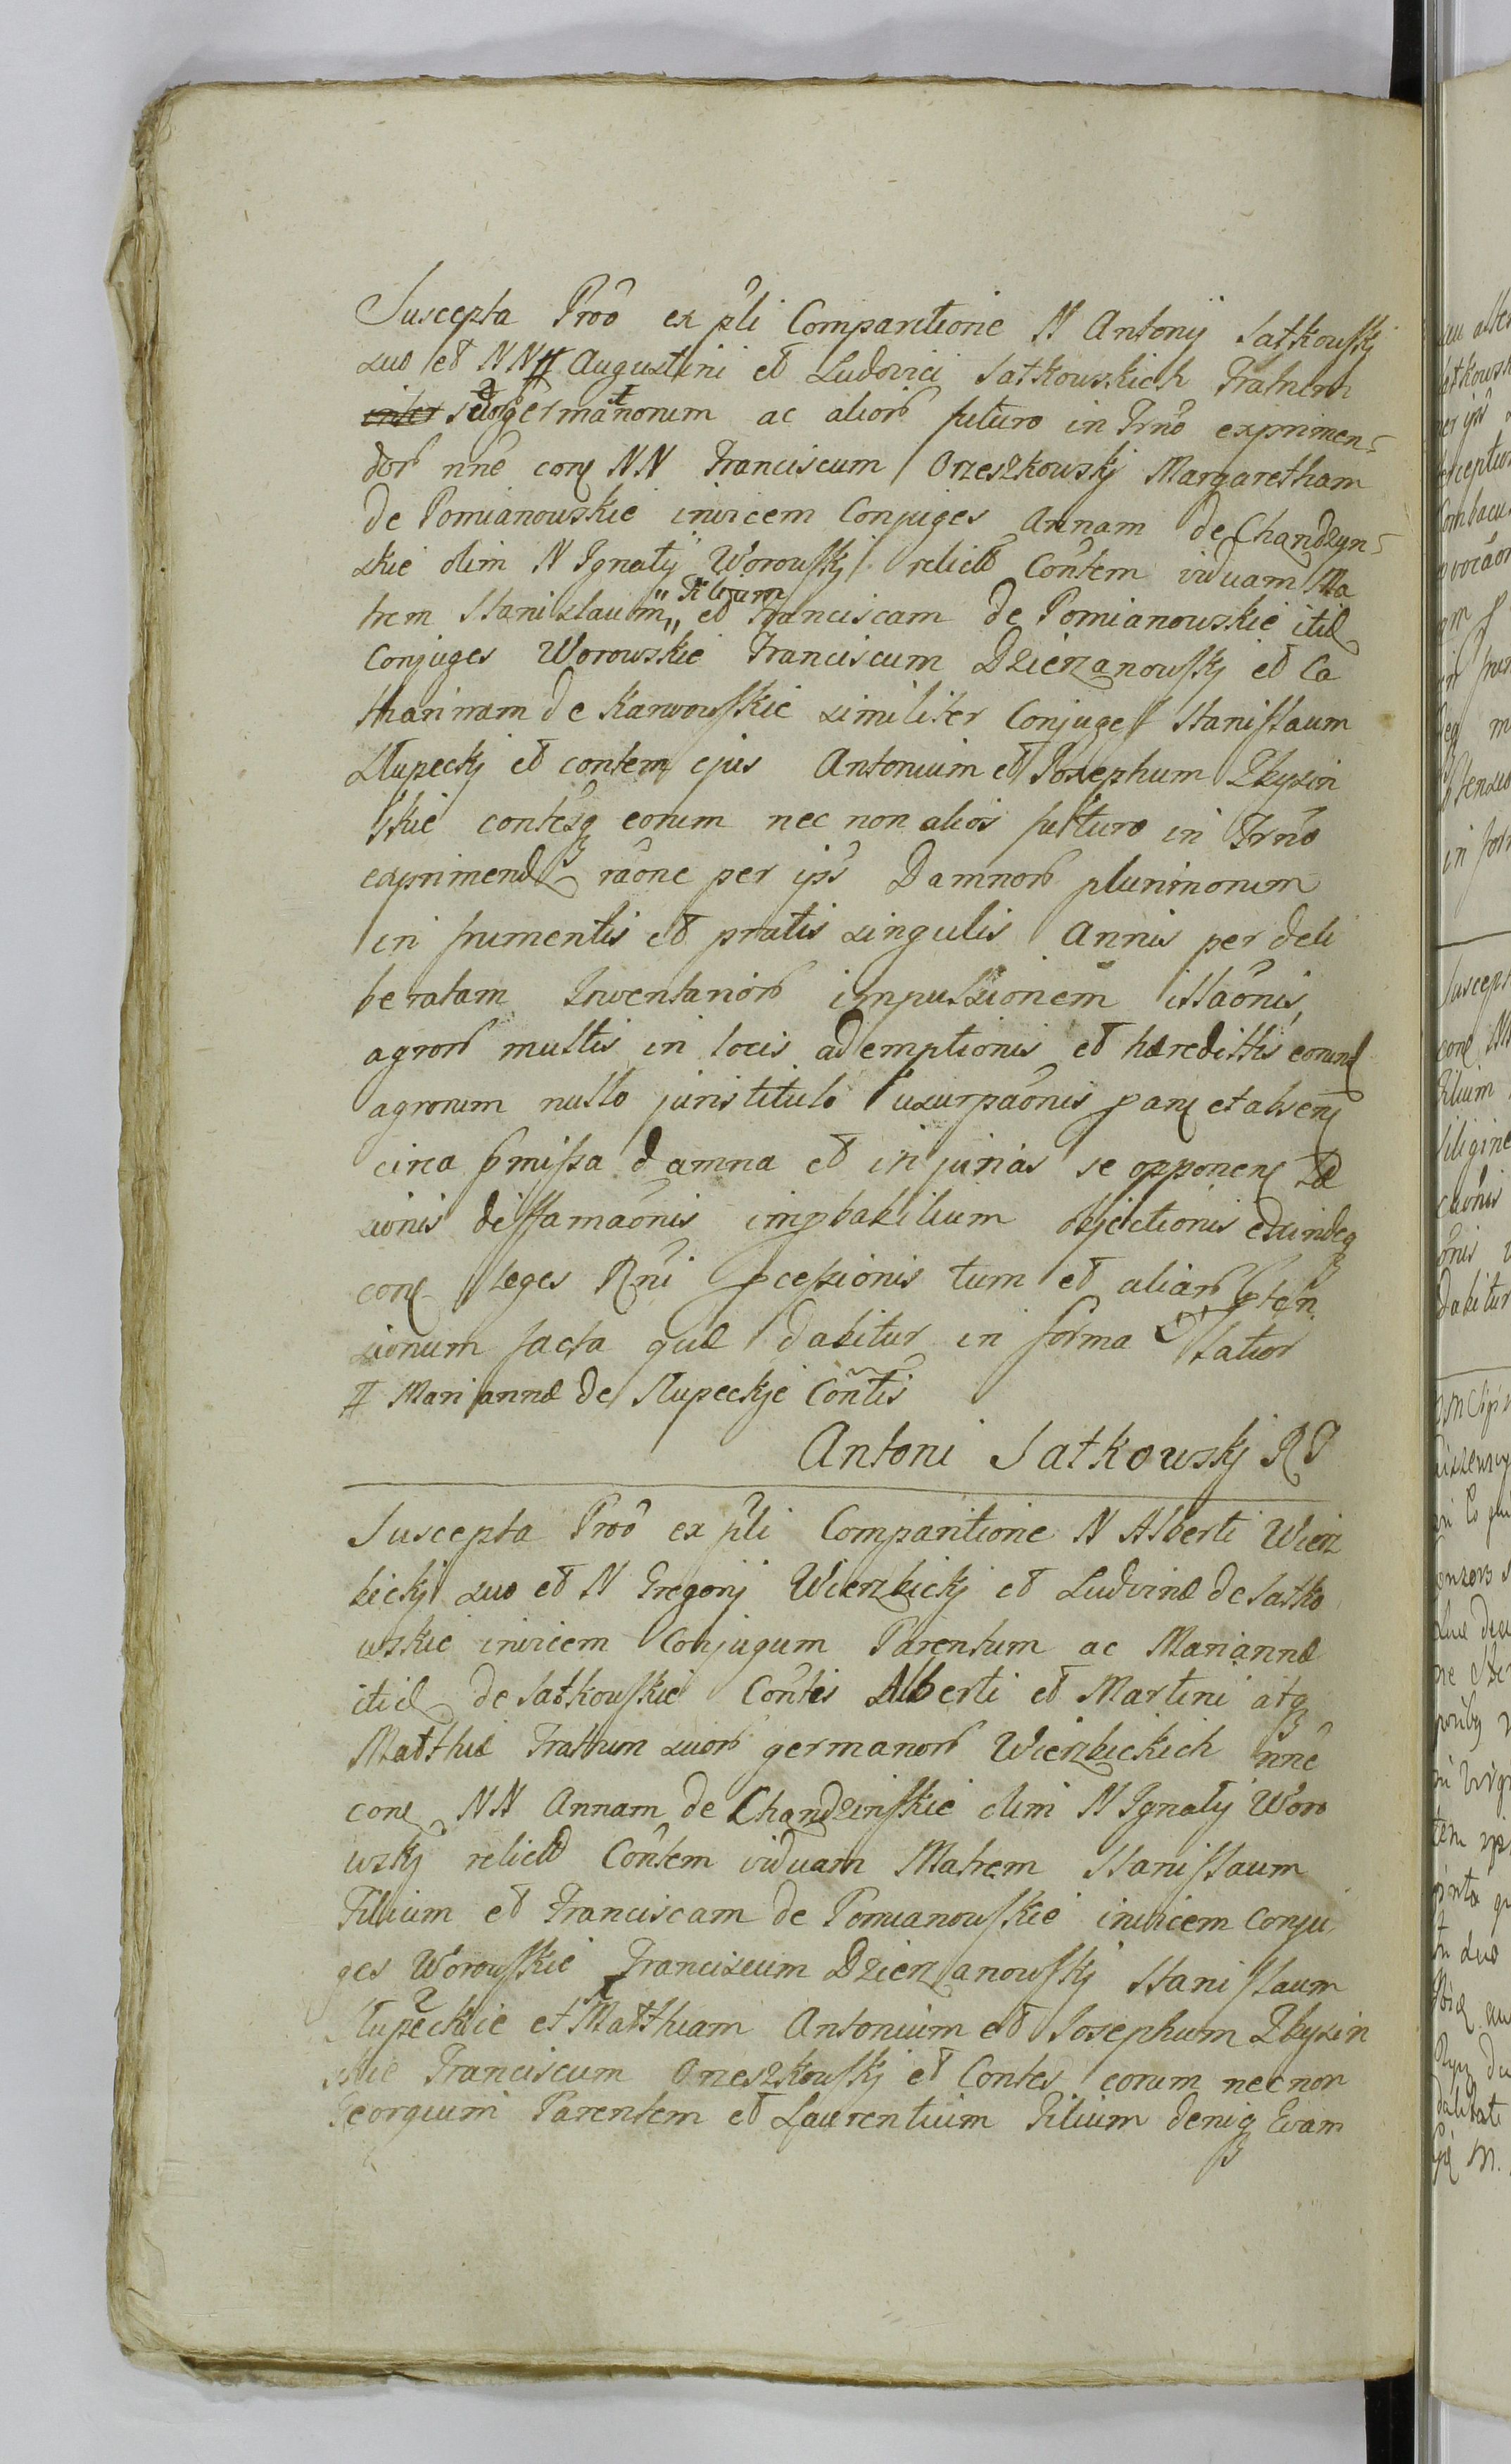 Suscepta Proõ ex pli Comparitione N Antonij Satkowskj
suo et NN # Augustini et Ludovici Satkowskich Fratrum
suor germanorum ac alior futuro in Trno exprimen=
dor nne con NN Franciscum Orzeszkowskj Margaretham
de Pomianowskie invicem Conjuges Annam de Chandzyn=
skie olim N Ignatij Worowskj relict Contem viduam Ma
trem Stanislaum,, Filium et Franciscam de Pomianowskie itid
Conjuges Worowskie Franciscum Dzierzanowskj et Ca
tharinam de Karwowskie similiter Conjuges Stanislaum
Slupeckj et contem ejus Antonium et Josephum Zbysin
skie contesq eorum nec non alios futuro in Trno
exprimend raõne per ips Damnor plurimorum
in frumentis et pratis singulis Annis per deli
beratam Inventarior impulsionem illaõnis,
agror multis in locis ademptionis et hæredittis eorund
agrorum nullo juris titulo usurpaõnis
circa pmissa damna et injurias se opponen Læ
sionis diffamaõnis improbabilium objectionis exindeq
con leges Rni pcessionis tum et aliar pten
sionum facta quæ dabitur in forma latior
# Mariannæ de Slupeckje Coñtis
Antoni Satkowskj RP
Suscepta Proõ ex pli Comparitione N Alberti Wierz
bickj suo et N Gregorij Wierzbickj et Ludvinæ de Satko
wskie invicem Conjugum Parentum ac Mariannæ
itid de Satkowskie Contis Alberti et Martini atq
Matthiæ Fratrum suor germanor Wierzbickich nne
con NN Annam de Chandzinskie olim N Ignatij Woro
wskj relict Contem viduam Matrem Stanislaum
Filium et Franciscam de Pomianowskie invicem Conju
ges Worowskie Franciscum Dzierzanowskj Stanislaum
Slupeckie et Matthiam Antonium et Josephum Zbysin
skie Franciscum Orzeszkowskj et Contes eorum necnon
Georgium Parentem et Laurentium Filium deniq Evam